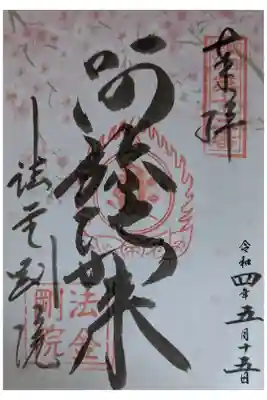 奉拝
令和四年五月十五日
阿弥陀如来
法金剛院
法金
剛院